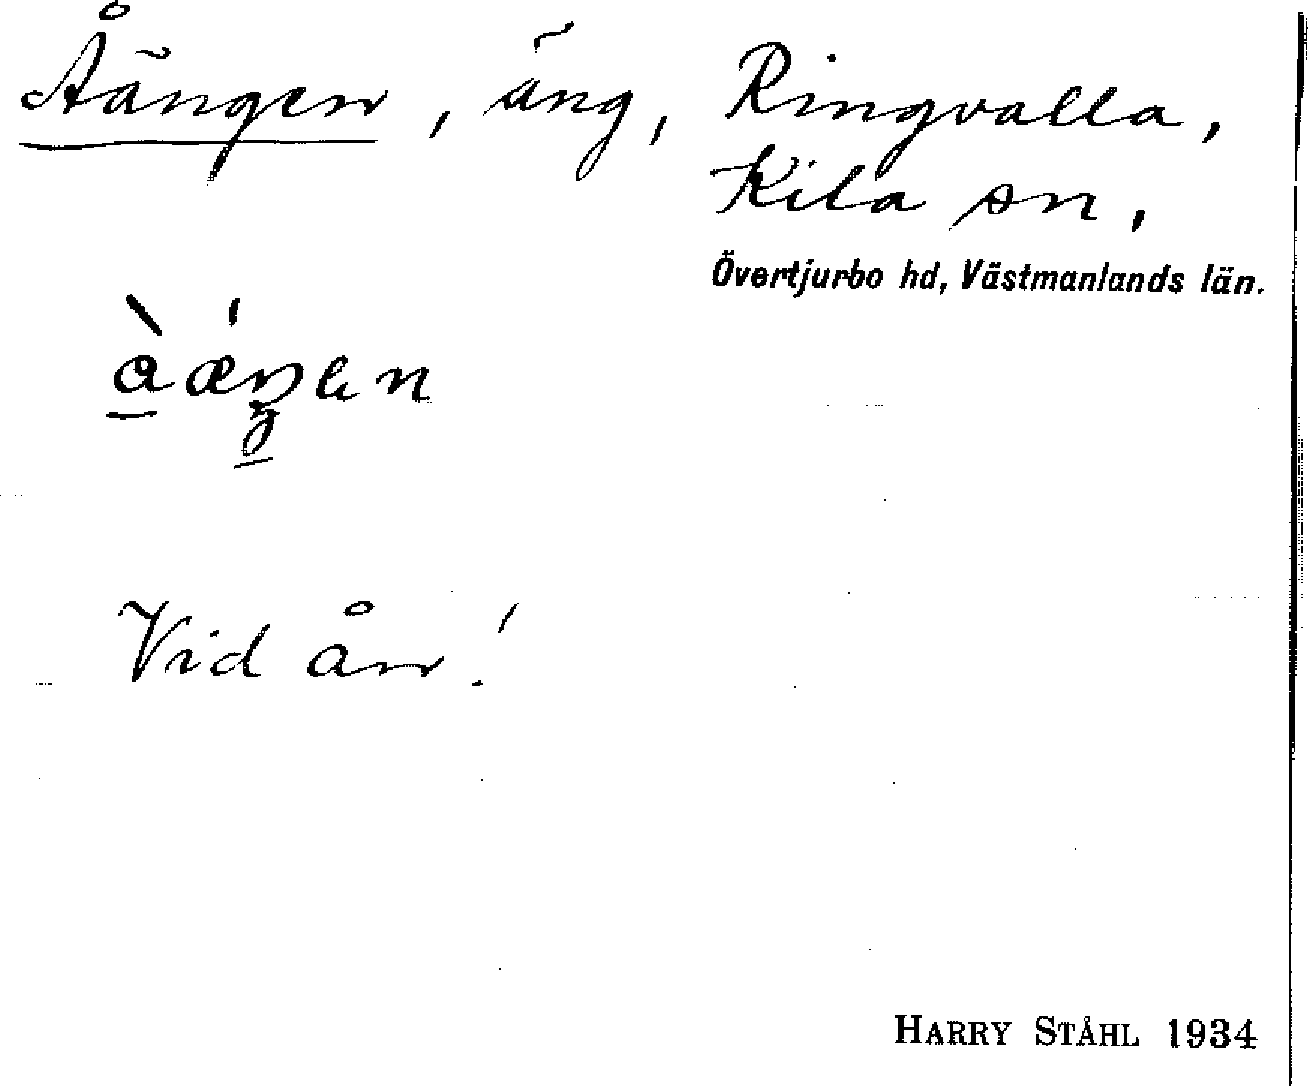 Åängen, äng, Ringvalla,
Kila sn,
Övertjurbo hd, Västmanlands län.
Vid ån!
HARRY STÅHL 1934